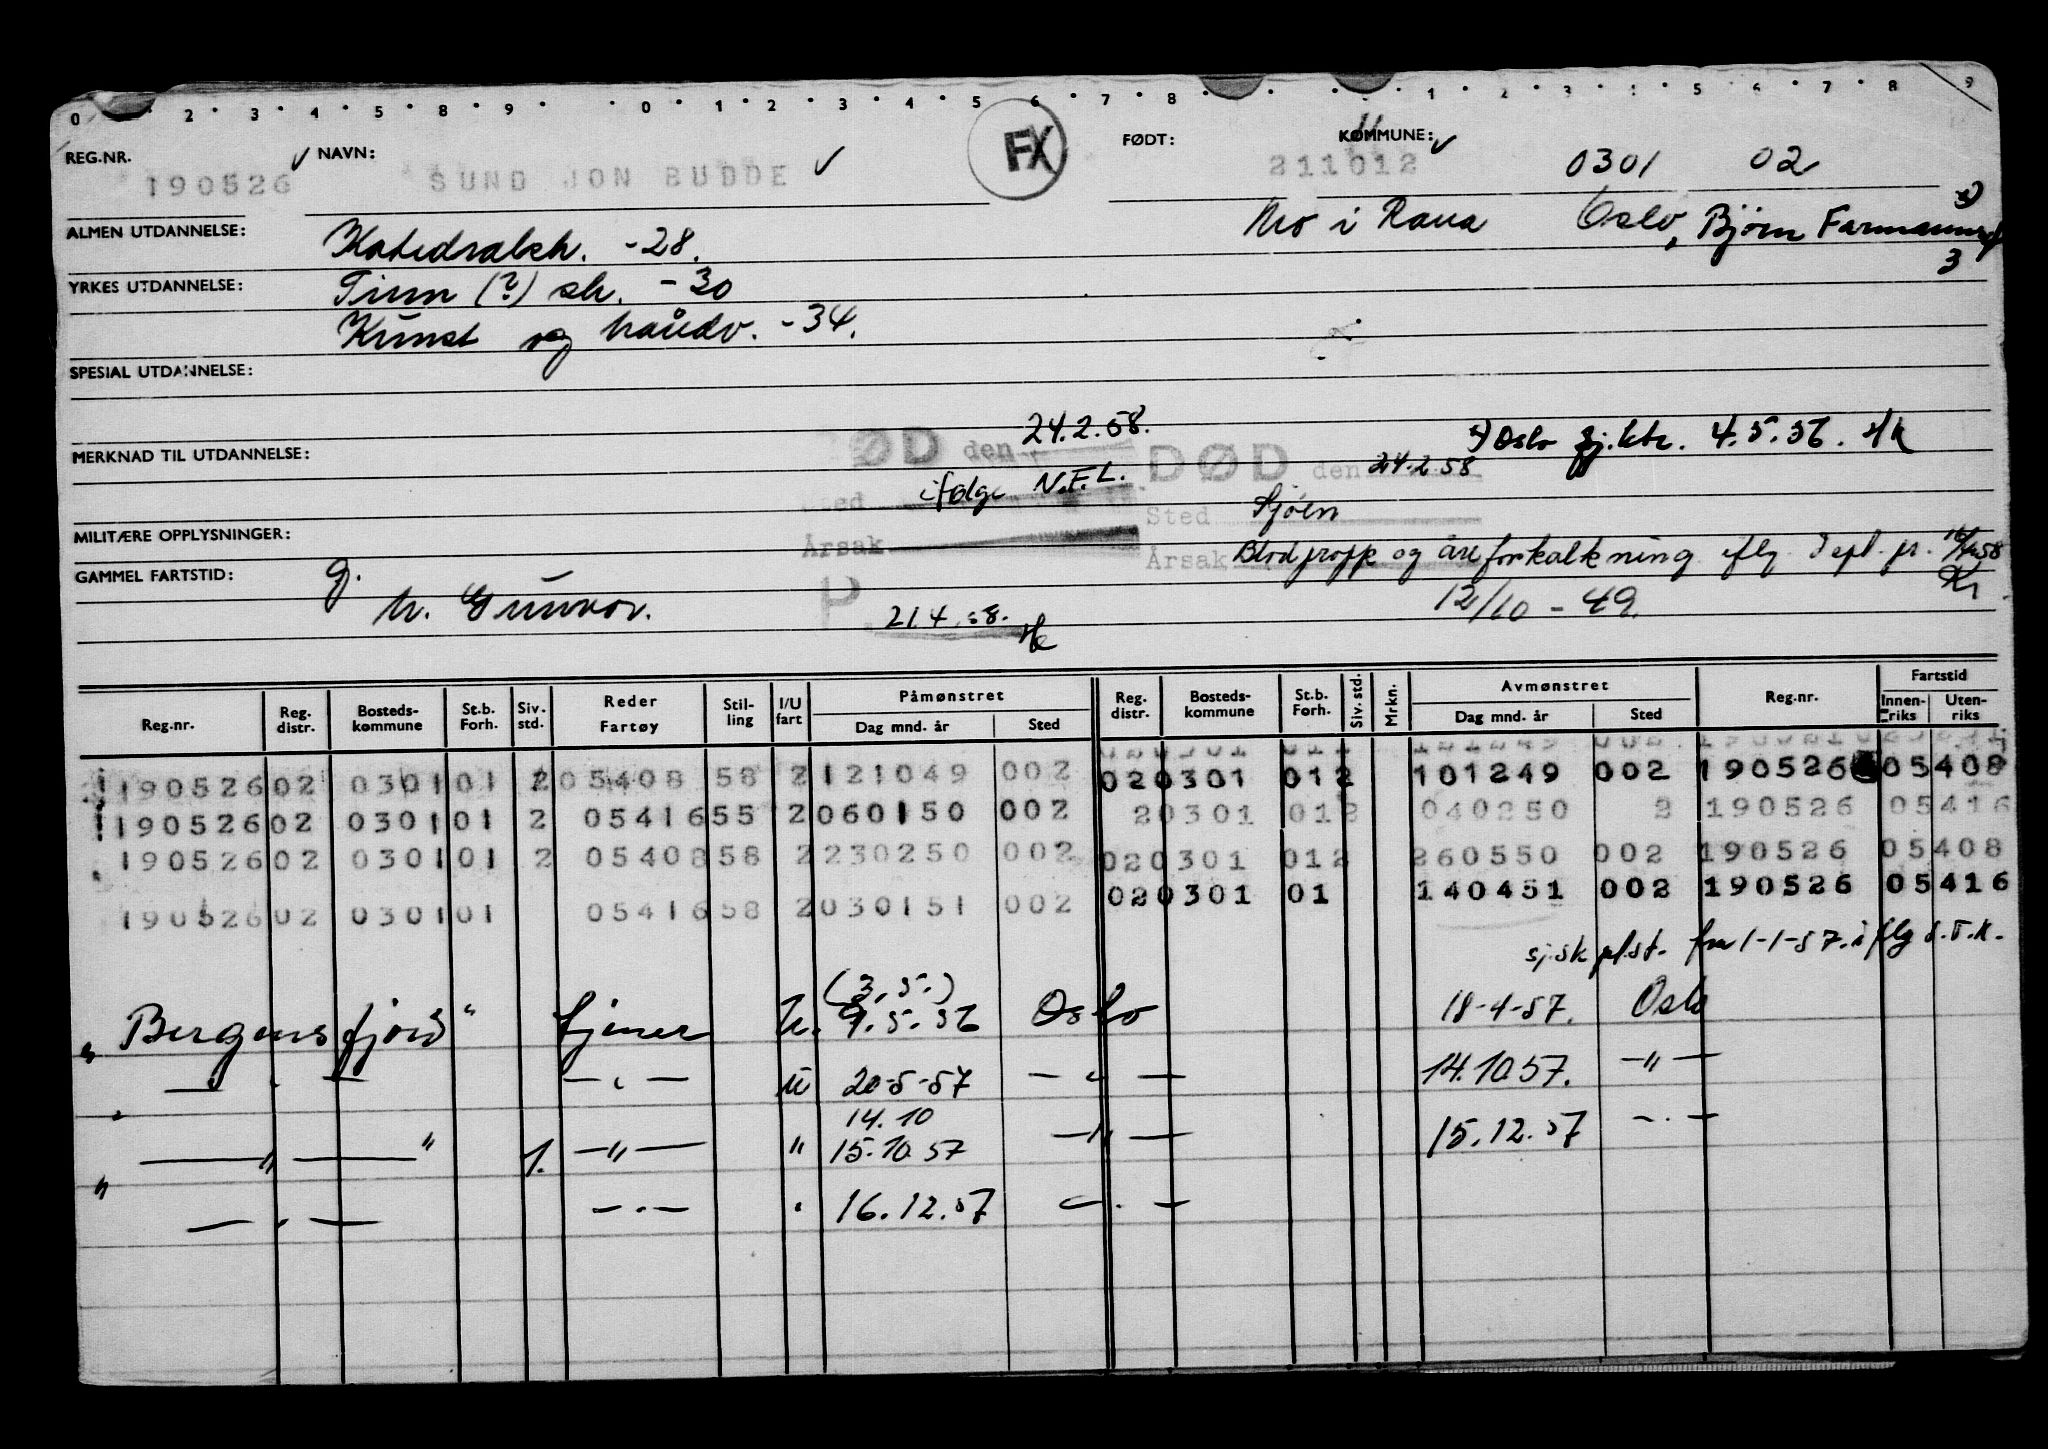 0 2 3 4 5 8 9 0 1 2 3 4 5 6 7 8 1 2 3 4 5 6 7 8 9
REG.NR. NAVN: FX FØDT: KOMMUNE:
190526 SUND JON BUDDE 211012 0301 02
ALMEN UTDANNELSE: Katedralsk. -28. Mo i Rana Oslo, Bjørn Farmannsgt
3
YRKES UTDANNELSE: Timm (?) sk. -30
Kunst og håndv. -34.
SPESIAL UTDANNELSE:
MERKNAD TIL UTDANNELSE: ØD den 24.2.58. x) Oslo sj.ktr. 4.5.56.
ifølge N.F.L. DØD den 24.2 58
Sted Sted Sjøen
MILITÆRE OPPLYSNINGER: Årsak Årsak Blodpropp og åreforkalkning iflg.
GAMMEL FARTSTID: g. P 12/10 - 49.
M. Gunvor. 21.4.58.
Reg.nr. Reg. distr. Bosteds-kommune St.b. Forh. Siv. std. Reder Fartøy Stil-ling I/U fart Påmønstret Dag mnd. år Sted Reg. distr. Bosteds-kommune St.b. Forh. Siv. std. Mrkn. Avmønstret Dag mnd. år Sted Reg.nr. Fartstid Innen-riks Uten-riks
190526 02 0301 01 2 05408 58 2 121049 002 02 0301 01 2 101249 002 190526 05408
190526 02 0301 01 2 05416 55 2 060150 002 2 0301 01 2 040250 2 190526 05416
190526 02 0301 01 2 05408 58 2 230250 002 02 0301 01 2 260550 002 190526 05408
190526 02 0301 01 05416 58 2 030151 002 02 0301 01 140451 002 190526 05416
sj.sk.pl.st. fra 1-1-57. iflg
(3.5.)
"Bergensfjord" tjener U. 9.5.56 Oslo 18-4-57. Oslo
— " — — " — U 20-5-57 — " — 14.10 57. — " —
14.10
— " — 1. — " — " 15.10.57 — " — 15.12.57 — " —
— " — — " — " 16.12.57 — " —